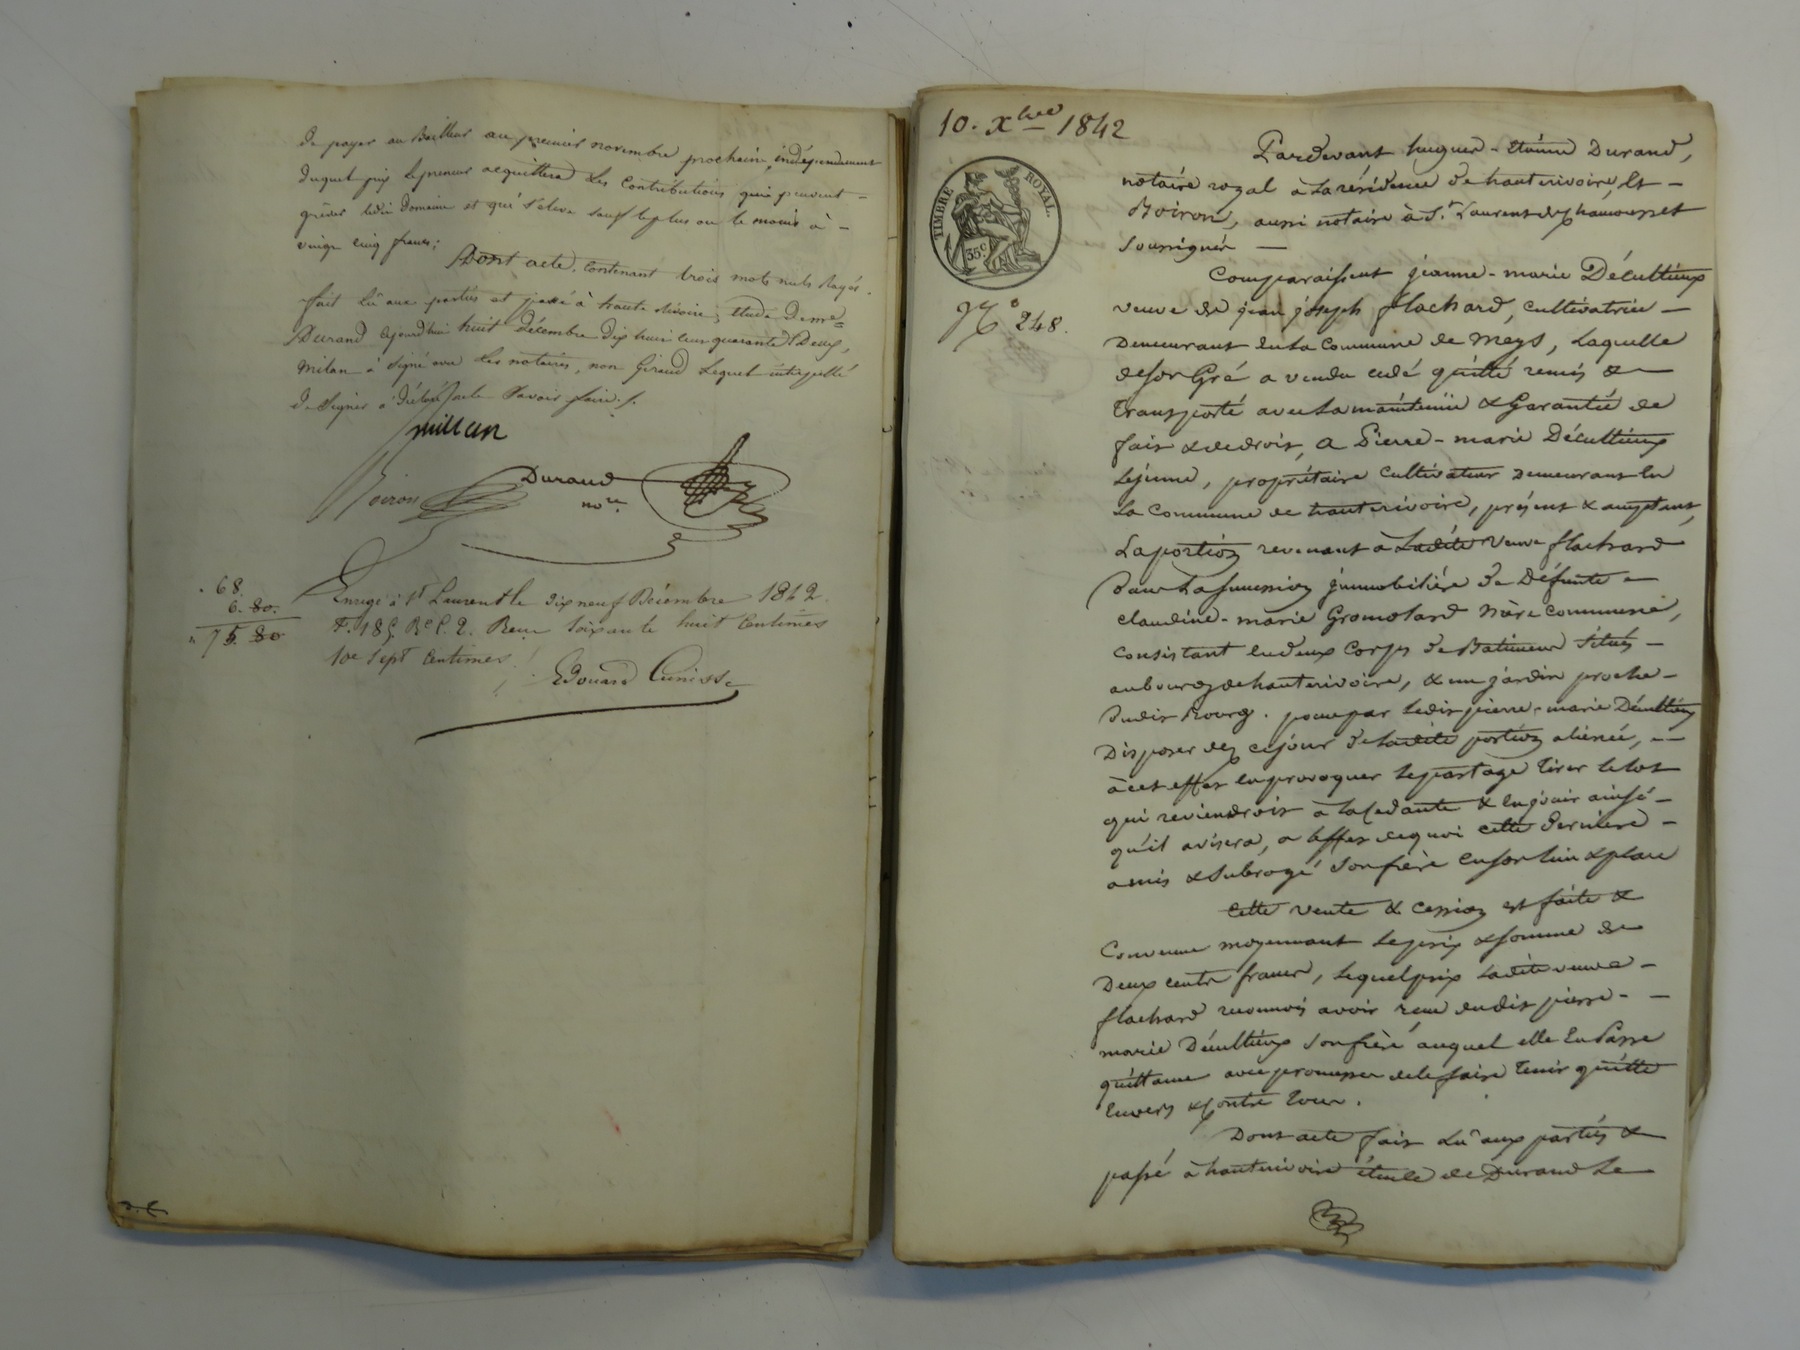 de payer au Bailleur au premier novembre prochain, indépendemment
duquel prix le preneur acquittera les Contributions qui peuvent -
grever ledit Domaine et qui s'élève sauf le plus ou le moins à -
vingt cinq francs;
Dont acte, Contenant trois mots nuls Rayés.
fait lû aux parties et passé à hauterivoire, étude De me=
Durand aujourdhui huit décembre dix huit cent quarante Deux,
Milan à signé avec les notaires, non Giraud lequel interpellé
de signer a déclaré ne le Savoir faire.
millan
Boiron
Durand
nore
68.
6. 80.
75. 80
Enregé à St Laurent le dix neuf Décembre 1842.
F. 185 Ro C. 2. Reçu Soixante huit Centimes
10e Sept Centimes.
Edouard
10. Xbre 1842
TIMBRE ROYAL.
35 c
No 248.
Pardevant hugues - étienne Durand,
notaire royal à la résidence de hauterivoire, et -
Boiron, aussi notaire à St Laurent de chamousset
soussignés -
Comparaissent jeanne - marie Décultieux
veuve de jean joseph flachard, cultivatrice -
Demeurant en la Commune de Meys, laquelle
de son Gré a vendu cédé quitté remis &
transporté avec la maintenüe & Garantie de
fait & de droit, a Pierre - marie Décultieux
Lejeune, propriétaire cultivateur demeurant en
la Commune de hauterivoire, présent & acceptant,
La portion revenant à Ladite veuve flachard
Dans la succession immobilière de Défunte -
claudine - marie Gromolard mère commune,
consistant en deux Corps de Batiment situés -
au bourg de hauterivoire, & un jardin proche -
dudit Bourg. pour par ledit pierre - marie Décultieux
Disposer dez ce jour de ladite portion aliénée, -
à cet effet en provoquer le partage tirer le lot
qui reviendroit à la Cedante & en jouir ainsi -
qu'il avisera, a l'effet de quoi cette derniere -
a mis & subrogé son frère en son lieu & place
Cette vente & cession est faite &
Convenue moyennant le prix & somme de
Deux cents francs, lequel prix ladite veuve -
flachard reconnois avoir reçu dudit pierre - -
marie Décultieux son frère auquel elle En Passe
quittance avec promesse de le faire tenir quitte
Envers & Contre tous.
Dont acte fait Lû aux parties &
passé à hauterivoire étude de Durand Le